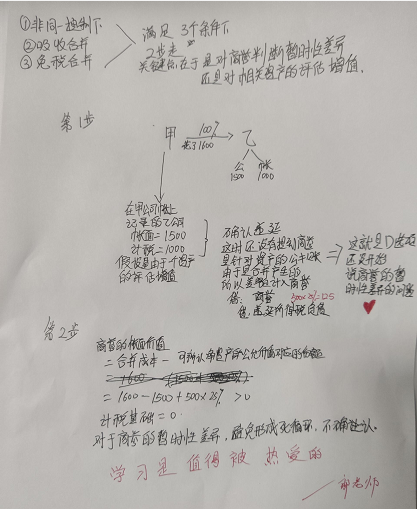 ①非同一控制下
②吸收合并
③免税合并
满足3个条件下
2步走
关键你在于是对商誉判断暂时性差异
还是对相关资产的评估增值.
第1步
甲 100% 乙
花了1600
公 账
1500 1000
在甲公司账上
记录的乙公司
账面=1500
计税=1000
假设是由于个资产
的评估增值
确认递延
这时还没有提到商誉
是针对资产的公于账
由于是合并产生的
所以差额计入商誉
借: 商誉 500×25%=125
贷:递延所得税负债
⇒ 这就是D选项
还没开始
说商誉的暂
时性差异的问题
第2步
商誉的账面价值
=合并成本-可辨认净资产的公允价值对应的份额
=1600-1500+500×25% >0
计税基础=0
对于商誉的暂时性差异,避免形成死循环,不确认.
学习是值得被热爱的
老师